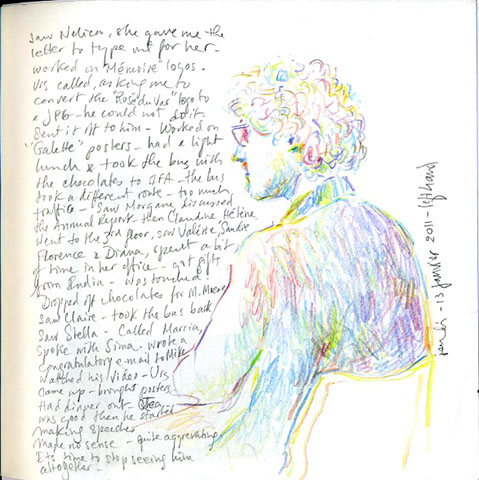 Saw Nelica, she gave me the
letter to type out for her -
worked on "Mémoire" logos.
Urs called, asking me to
convert the "Roséduvas" logo to
a JPG - he could not do it.
Sent it off to him - Worked on
"Galette" posters - had a light
lunch & took the bus with
the chocolates to QFA - the bus
took a different route - too much
traffic - Saw Morgane, discussed
the Annual Report then Claudine, Hélène,
Went to the 3rd floor, saw Valérie, Sandie
Florence & Diana, spent a bit
of time in her office - got gift
from India - was touched!
Dropped off chocolates for M.
Saw Claire - took the bus back
Saw Stella - Called Marcia,
spoke with Sima - wrote a
congratulatory e-mail to Mike
watched his video - Urs
came up - brought posters
Had dinner out
was good then he started
making speeches
Made no sense - quite aggravating.
It's time to stop seeing him
altogether -
13 janvier 2011 - left hand